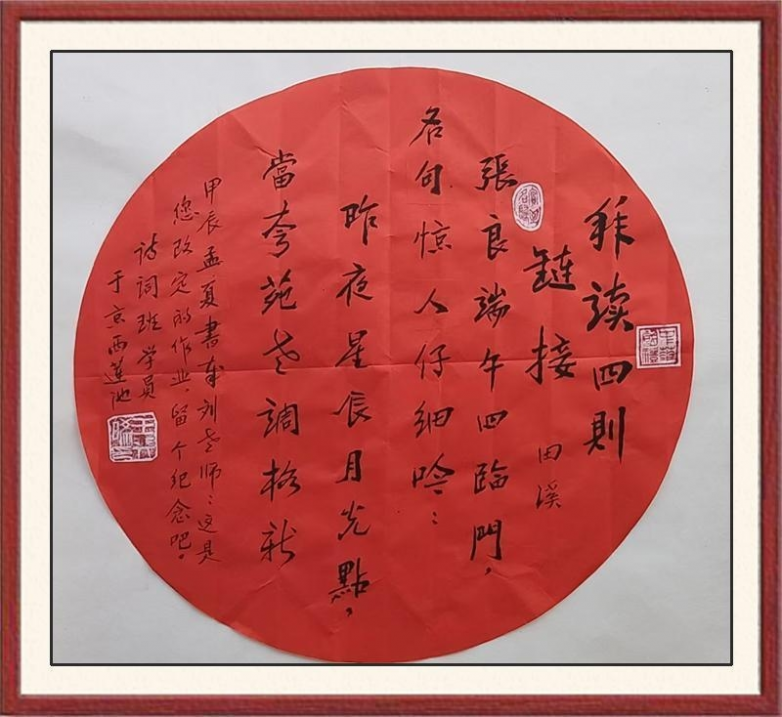 拜读四則
鏈接 田溪
張良端午四臨門，
名句惊人仔细吟：
昨夜星辰月光點，
當夸苑老調格新
甲辰孟夏書奉刘老师：这是
您改定的作业留个纪念吧。
诗词班学员
于京西莲池